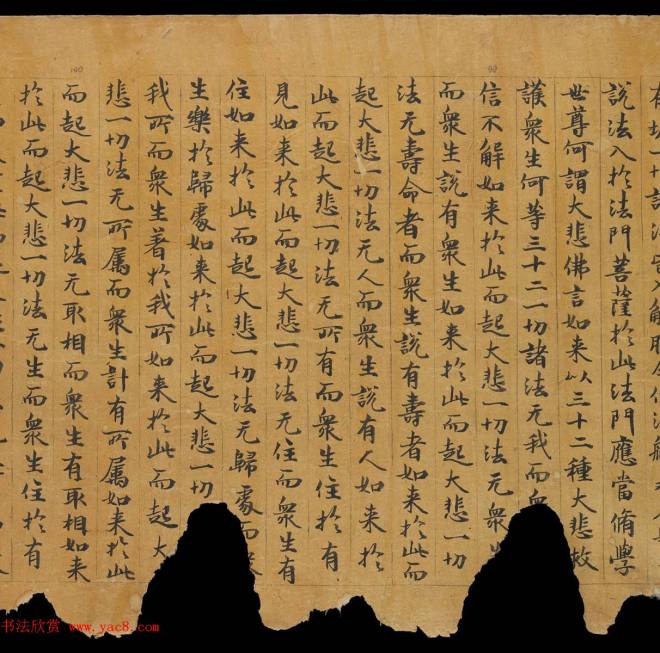 說法入於法門菩薩於此法門應當脩學
世尊何謂大悲佛言如来以三十二種大悲救
護衆生何等三十二一切諸法无我而衆
信不解如来於此而起大悲一切法无衆
而衆生說有衆生如来於此而起大悲一切
法无壽命者而衆生說有壽者如来於此而
起大悲一切法无人而衆生說有人如来於
此而起大悲一切法无所有而衆生住於有
見如来於此而起大悲一切法无住而衆生有
住如来於此而起大悲一切法无歸處而衆
生樂於歸處如来於此而起大悲一切
我所而衆生著於我所如来於此而起大
悲一切法无所属而衆生計有所属如来於此
而起大悲一切法无取相而衆生有取相如来
於此而起大悲一切法无生而衆生住於有
书法欣赏 www.yac8.com